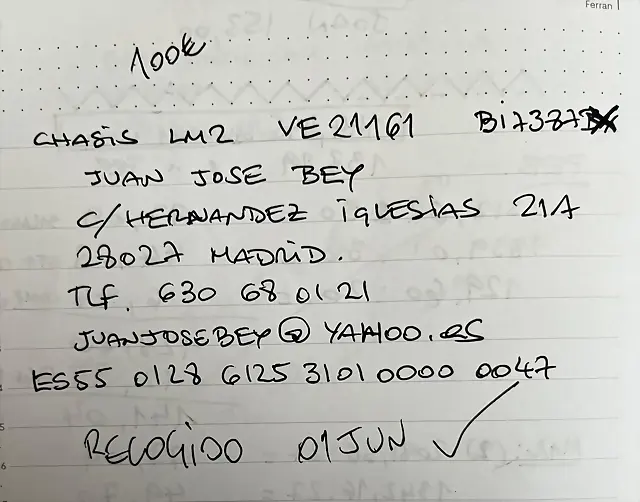 Ferran
100€
CHASIS LM2 VE21161 B17387
JUAN JOSE BEY
C/HERNANDEZ IGLESIAS 21A
28027 MADRID.
TLF. 630 68 01 21
JUANJOSEBEY@YAHOO.ES
ES55 0128 6125 3101 0000 0047
RECOGIDO 01 JUN ✓